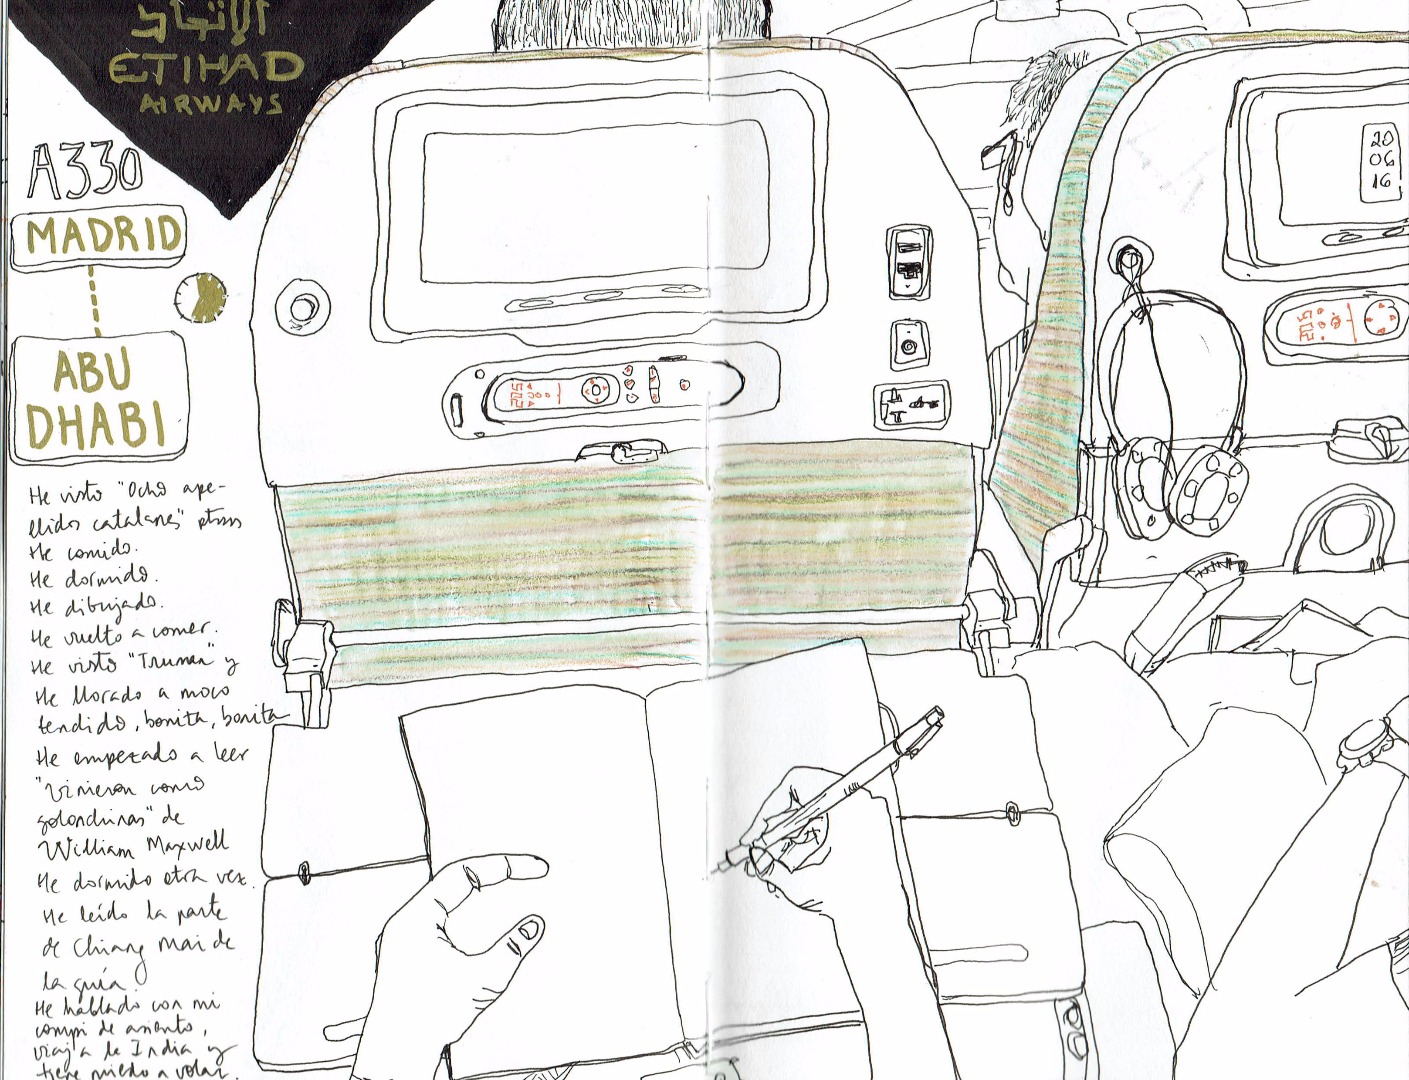 الاتحاد
ETIHAD
AIRWAYS
A330
MADRID
ABU
DHABI
20
06
16
He visto "Ocho ape-
llidos catalanes"
He comido.
He dormido.
He dibujado.
He vuelto a comer.
He visto "Truman" y
He llorado a moco
tendido, bonita, bonita
He empezado a leer
"Vinieron como
golondrinas" de
William Maxwell
He dormido otra vez.
He leído la parte
de Chiang Mai de
la guía.
He hablado con mi
compi de asiento,
viaja a la India y
tiene miedo a volar.